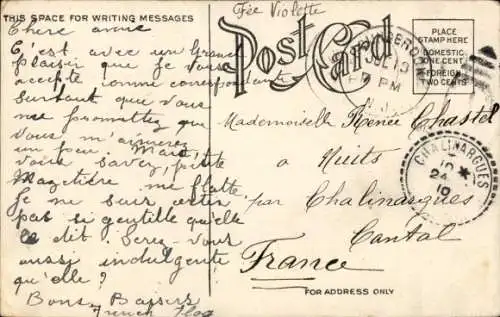 Fée Violette
THIS SPACE FOR WRITING MESSAGES
Post Card
PLACE
STAMP HERE
DOMESTIC
ONE CENT
FOREIGN
TWO CENTS
JUL 13
PM
Chere amie
C'est avec un Grand
plaisir que je vous
accepte comme correspondante
Surtout que vous
me promettez que
vous m'aimerez
un peu. Mais,
vous savez, petite
me flatte
Je me suis
pas si gentille qu'elle
le dit. Serez-vous
aussi indulgente
qu'elle?
Bons Baisers
French Flag
Mademoiselle Renée Chastel
a Nuits
par Chalinargues
Cantal
France
CHALINARGUES
10
24
10
FOR ADDRESS ONLY